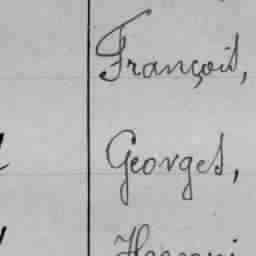 François,
Georges,